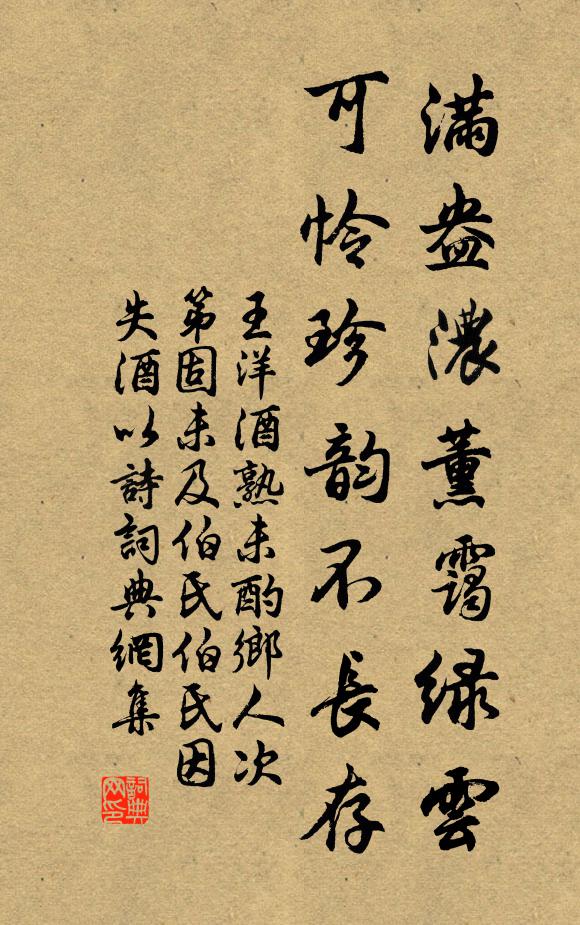 滿盎濃薰靄绿雲
可怜珍韵不長存
王洋酒熟未酌鄉人次
第固未及伯民伯民因
失酒以詩詞典網集
詞典网印